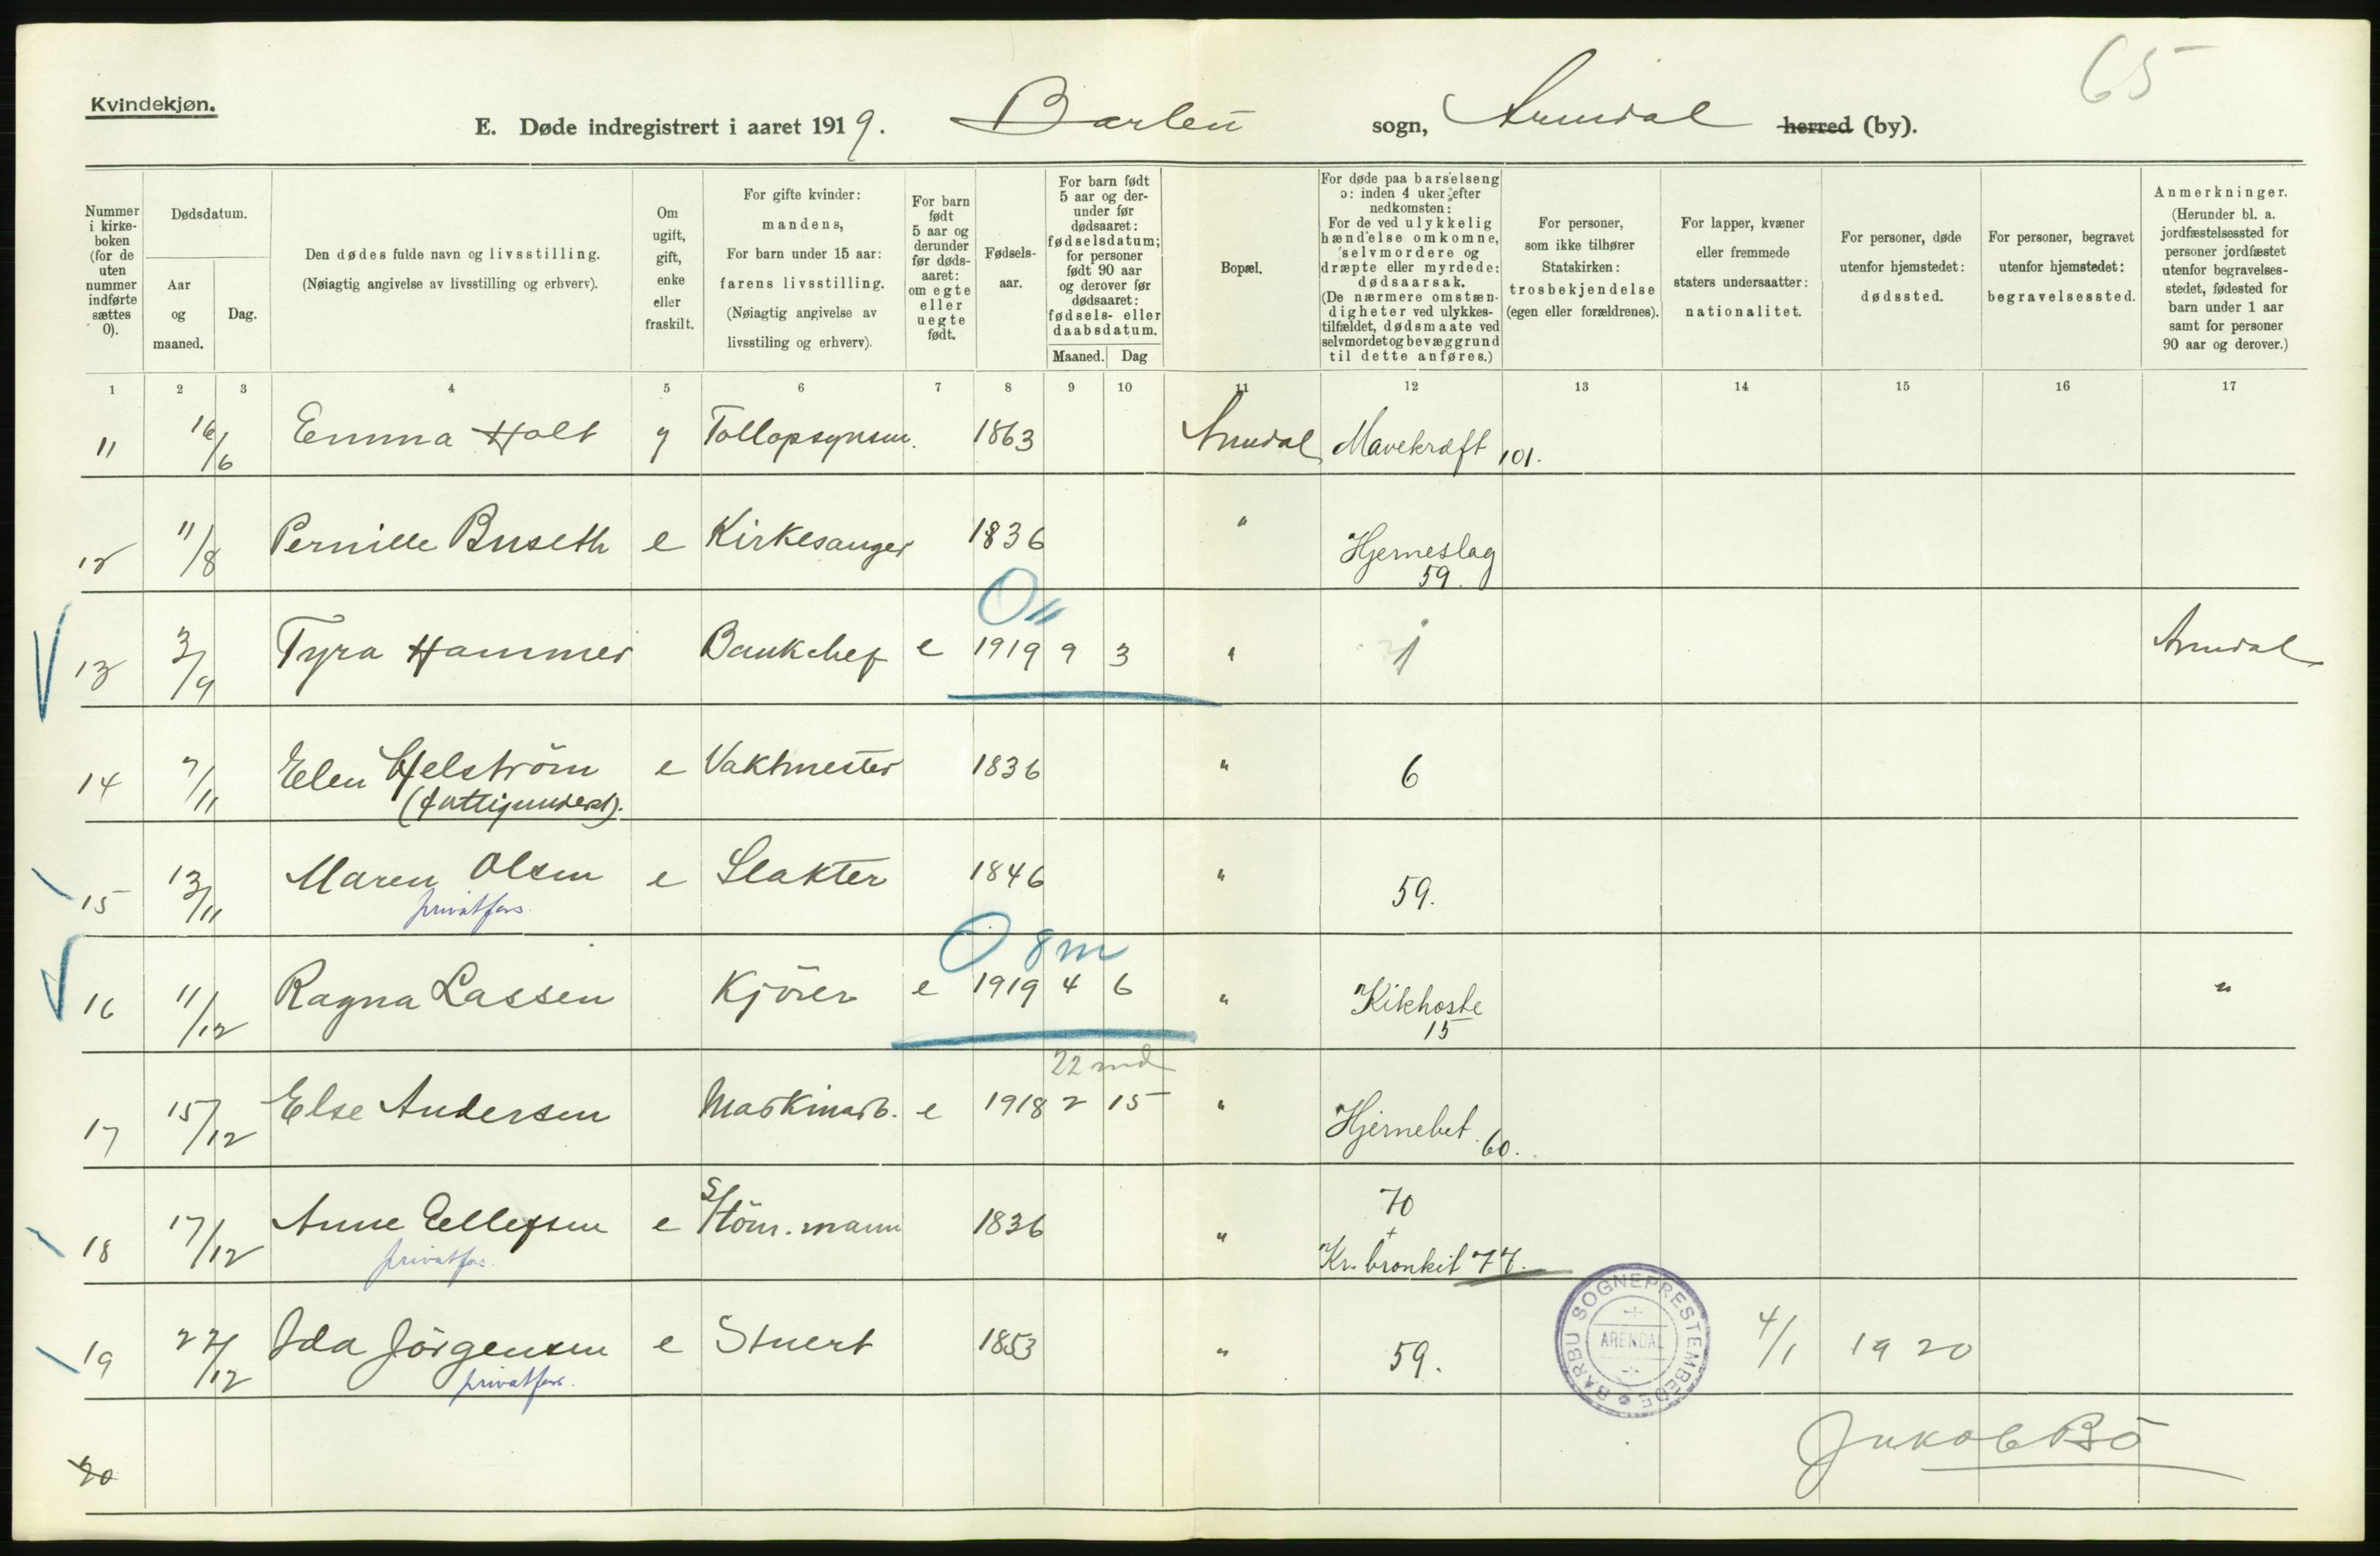 65
Kvindekjøn.
E. Døde indregistrert i aaret 1919. Barbu sogn, Arendal herred (by).
Nummer i kirke-boken (for de uten nummer indførte sættes 0).
Dødsdatum.
Aar og maaned.
Dag.
Den dødes fulde navn og livsstilling.
(Nøiagtig angivelse av livsstilling og erhverv).
Om ugift, gift, enke eller fraskilt.
For gifte kvinder: mandens,
For barn under 15 aar: farens livsstilling.
(Nøiagtig angivelse av livsstiling og erhverv).
For barn født 5 aar og derunder før døds-aaret: om egte eller uegte født.
Fødsels-aar.
For barn født 5 aar og der-under før dødsaaret: fødselsdatum; for personer født 90 aar og derover før dødsaaret: fødsels- eller daabsdatum.
Maaned. Dag
Bopæl.
For døde paa barselseng ɔ: inden 4 uker efter nedkomsten:
For de ved ulykkelig hændelse omkomne, selvmordere og dræpte eller myrdede: dødsaarsak.
(De nærmere omstæn-digheter ved ulykkes-tilfældet, dødsmaate ved selvmordet og bevæggrund til dette anføres.)
For personer, som ikke tilhører Statskirken: trosbekjendelse (egen eller forældrenes).
For lapper, kvæner eller fremmede staters undersaatter: nationalitet.
For personer, døde utenfor hjemstedet: dødssted.
For personer, begravet utenfor hjemstedet: begravelsessted.
Anmerkninger.
(Herunder bl. a. jordfæstelsessted for personer jordfæstet utenfor begravelses-stedet, fødested for barn under 1 aar samt for personer 90 aar og derover.)
1 2 3 4 5 6 7 8 9 10 11 12 13 14 15 16 17
11 16/6 Emma Holt g Tollopsynsm. 1863 Arendal Mavekræft 101.
12 11/8 Pernille Buseth e Kirkesanger 1836 " Hjerneslag
59.
0 "
13 3/9 Tyra Hammer Bankchef e 1919 9 3 " 1 Arendal
14 7/11 Elen Helström e Vaktmester 1836 " 6
(fattigunderst).
15 13/11 Maren Olsen e Slakter 1846 " 59.
privatfors.
0 8 m
16 11/12 Ragna Lassen Kjörer e 1919 4 6 " Kikhoste "
15
22 md
17 15/12 Else Andersen Maskinarb. e 1918 2 15 " Hjernebet. 60.
70
+
18 17/12 Anne Ellefsen e Töm. mann 1836 " Kr. bronkit 77.
privatfors.
19 22/12 Ida Jörgensen e Stuert 1853 " 59.
privatfors.
BARBU SOGNEPRESTEMBEDE
ARENDAL
4/1 1920
Jakob Bö
20